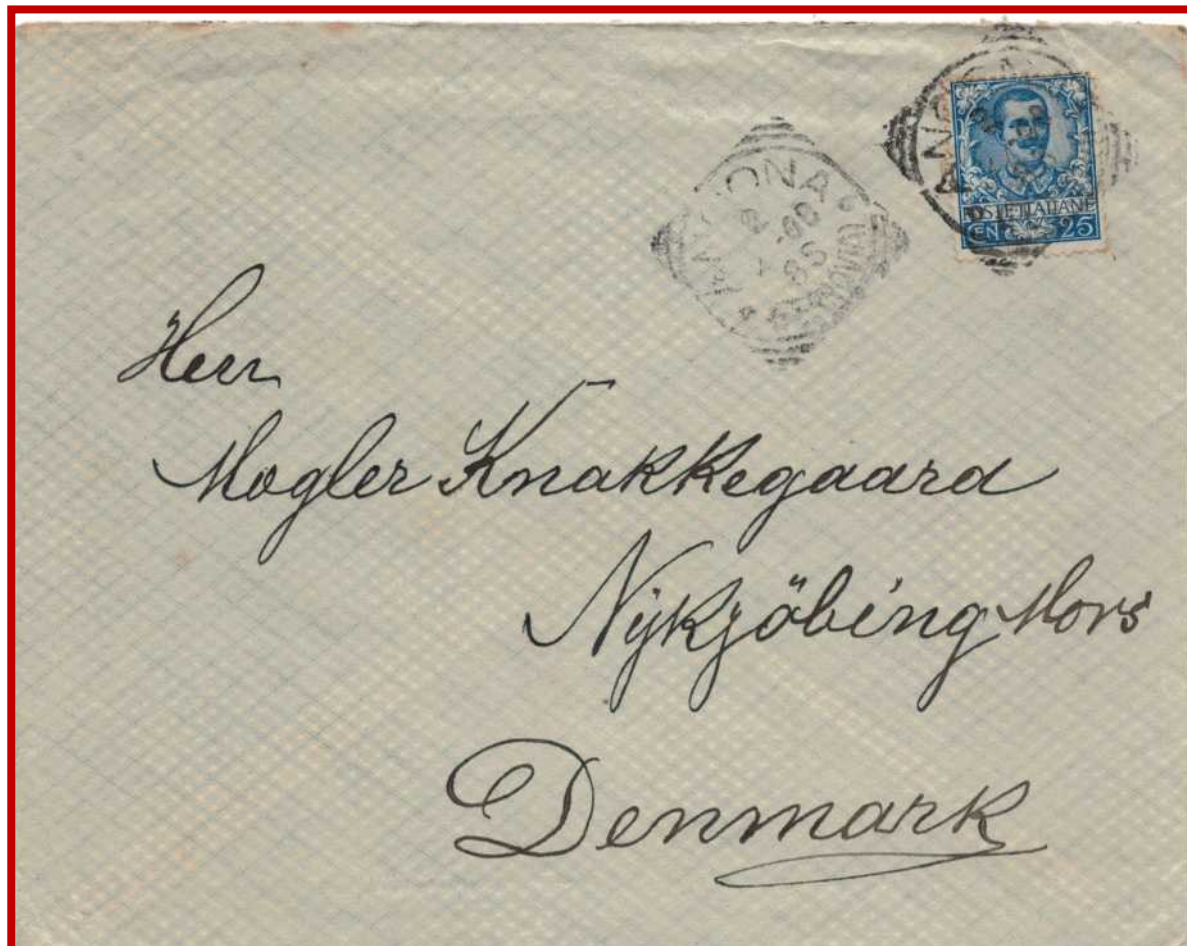 ANCONA
FERROVIA
POSTE ITALIANE
CEN 25
Herr
Mægler Knakkegaard
Nÿkjöbing Mors
Denmark